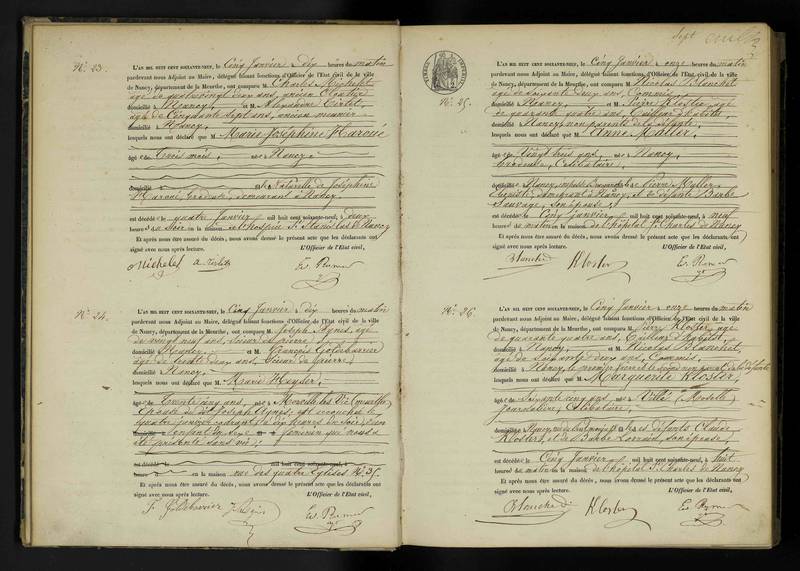 N.º 23.
L'AN MIL HUIT CENT SOIXANTE-NEUF, le Cinq Janvier à Dix heures du matin
pardevant nous Adjoint au Maire, délégué faisant fonctions d'Officier de l'Etat civil de la ville
de Nancy, département de la Meurthe, ont comparu M. Charles Michelet
domicilié à Nancy, et M. Alexandre
âgé de Cinquante sept ans, ancien
domicilié à Nancy
lesquels nous ont déclaré que Marie Joséphine Haroué
âgée de trois mois, née à Nancy
domiciliée Naturelle de Joséphine
Haroué demeurant à Nancy,
est décédée le quatre Janvier mil huit cent soixante-neuf, à deux
heures du soir en la maison de l'hospice St. Stanislas de Nancy
Et après nous être assuré du décès, nous avons dressé le présent acte que les déclarants ont
signé avec nous après lecture. L'Officier de l'Etat civil,
Michelet
N.º 24.
L'AN MIL HUIT CENT SOIXANTE-NEUF, le Cinq Janvier à Dix heures du matin
pardevant nous Adjoint au Maire, délégué faisant fonctions d'Officier de l'Etat civil de la ville
de Nancy, département de la Meurthe, ont comparu M. Joseph Agnès, âgé
de vingt neuf ans,
domicilié à et M. François
âgé de trente deux ans,
domicilié à Nancy
lesquels nous ont déclaré que Marie
âgée de trente cinq ans, née à (Meurthe)
Epouse du dit Joseph Agnès, est accouchée le
quatre janvier courant à dix heures du soir d'un
enfant du sexe féminin qui nous a
été présenté sans vie
est décédé le mil huit cent soixante-neuf, à
heures en la maison rue des quatre Eglises N.º 35.
Et après nous être assuré du décès, nous avons dressé le présent acte que les déclarants ont
signé avec nous après lecture. L'Officier de l'Etat civil,
Sept
N.º 25.
L'AN MIL HUIT CENT SOIXANTE-NEUF, le Cinq Janvier à onze heures du matin
pardevant nous Adjoint au Maire, délégué faisant fonctions d'Officier de l'Etat civil de la ville
de Nancy, département de la Meurthe, ont comparu M. Nicolas Blanchet
âgé de soixante deux ans, Commis,
domicilié à Nancy, et M. Pierre Kloster, âgé
de quarante quatre ans, Tailleur d'habits,
domicilié à Nancy, non parents de la défunte
lesquels nous ont déclaré que Anne Muller,
âgée de Vingt trois ans, née à Nancy,
Célibataire,
domiciliée à Nancy, Pierre Muller,
demeurant à Nancy, et de défunte Barbe
Sauvage, son épouse,
est décédée le Cinq janvier mil huit cent soixante-neuf, à neuf
heures du matin en la maison de l'hôpital St. Charles de Nancy
Et après nous être assuré du décès, nous avons dressé le présent acte que les déclarants ont
signé avec nous après lecture. L'Officier de l'Etat civil,
Blanchet Kloster
N.º 26.
L'AN MIL HUIT CENT SOIXANTE-NEUF, le Cinq Janvier à onze heures du matin
pardevant nous Adjoint au Maire, délégué faisant fonctions d'Officier de l'Etat civil de la ville
de Nancy, département de la Meurthe, ont comparu M. Pierre Kloster, âgé
de quarante quatre ans, Tailleur d'habits,
domicilié à Nancy et M. Nicolas Blanchet,
âgé de Soixante deux ans, Commis,
domicilié à Nancy, le premier frère et le second non parent de la défunte
lesquels nous ont déclaré que Marguerite Kloster,
âgée de Soixante cinq ans, née à (Moselle)
journalière, Célibataire,
domiciliée à Nancy, de défunts Claude
Kloster, et de Barbe Lorrain, son épouse,
est décédée le Cinq Janvier mil huit cent soixante-neuf, à huit
heures du matin en la maison de l'hôpital St. Charles de Nancy
Et après nous être assuré du décès, nous avons dressé le présent acte que les déclarants ont
signé avec nous après lecture. L'Officier de l'Etat civil,
Blanchet Kloster